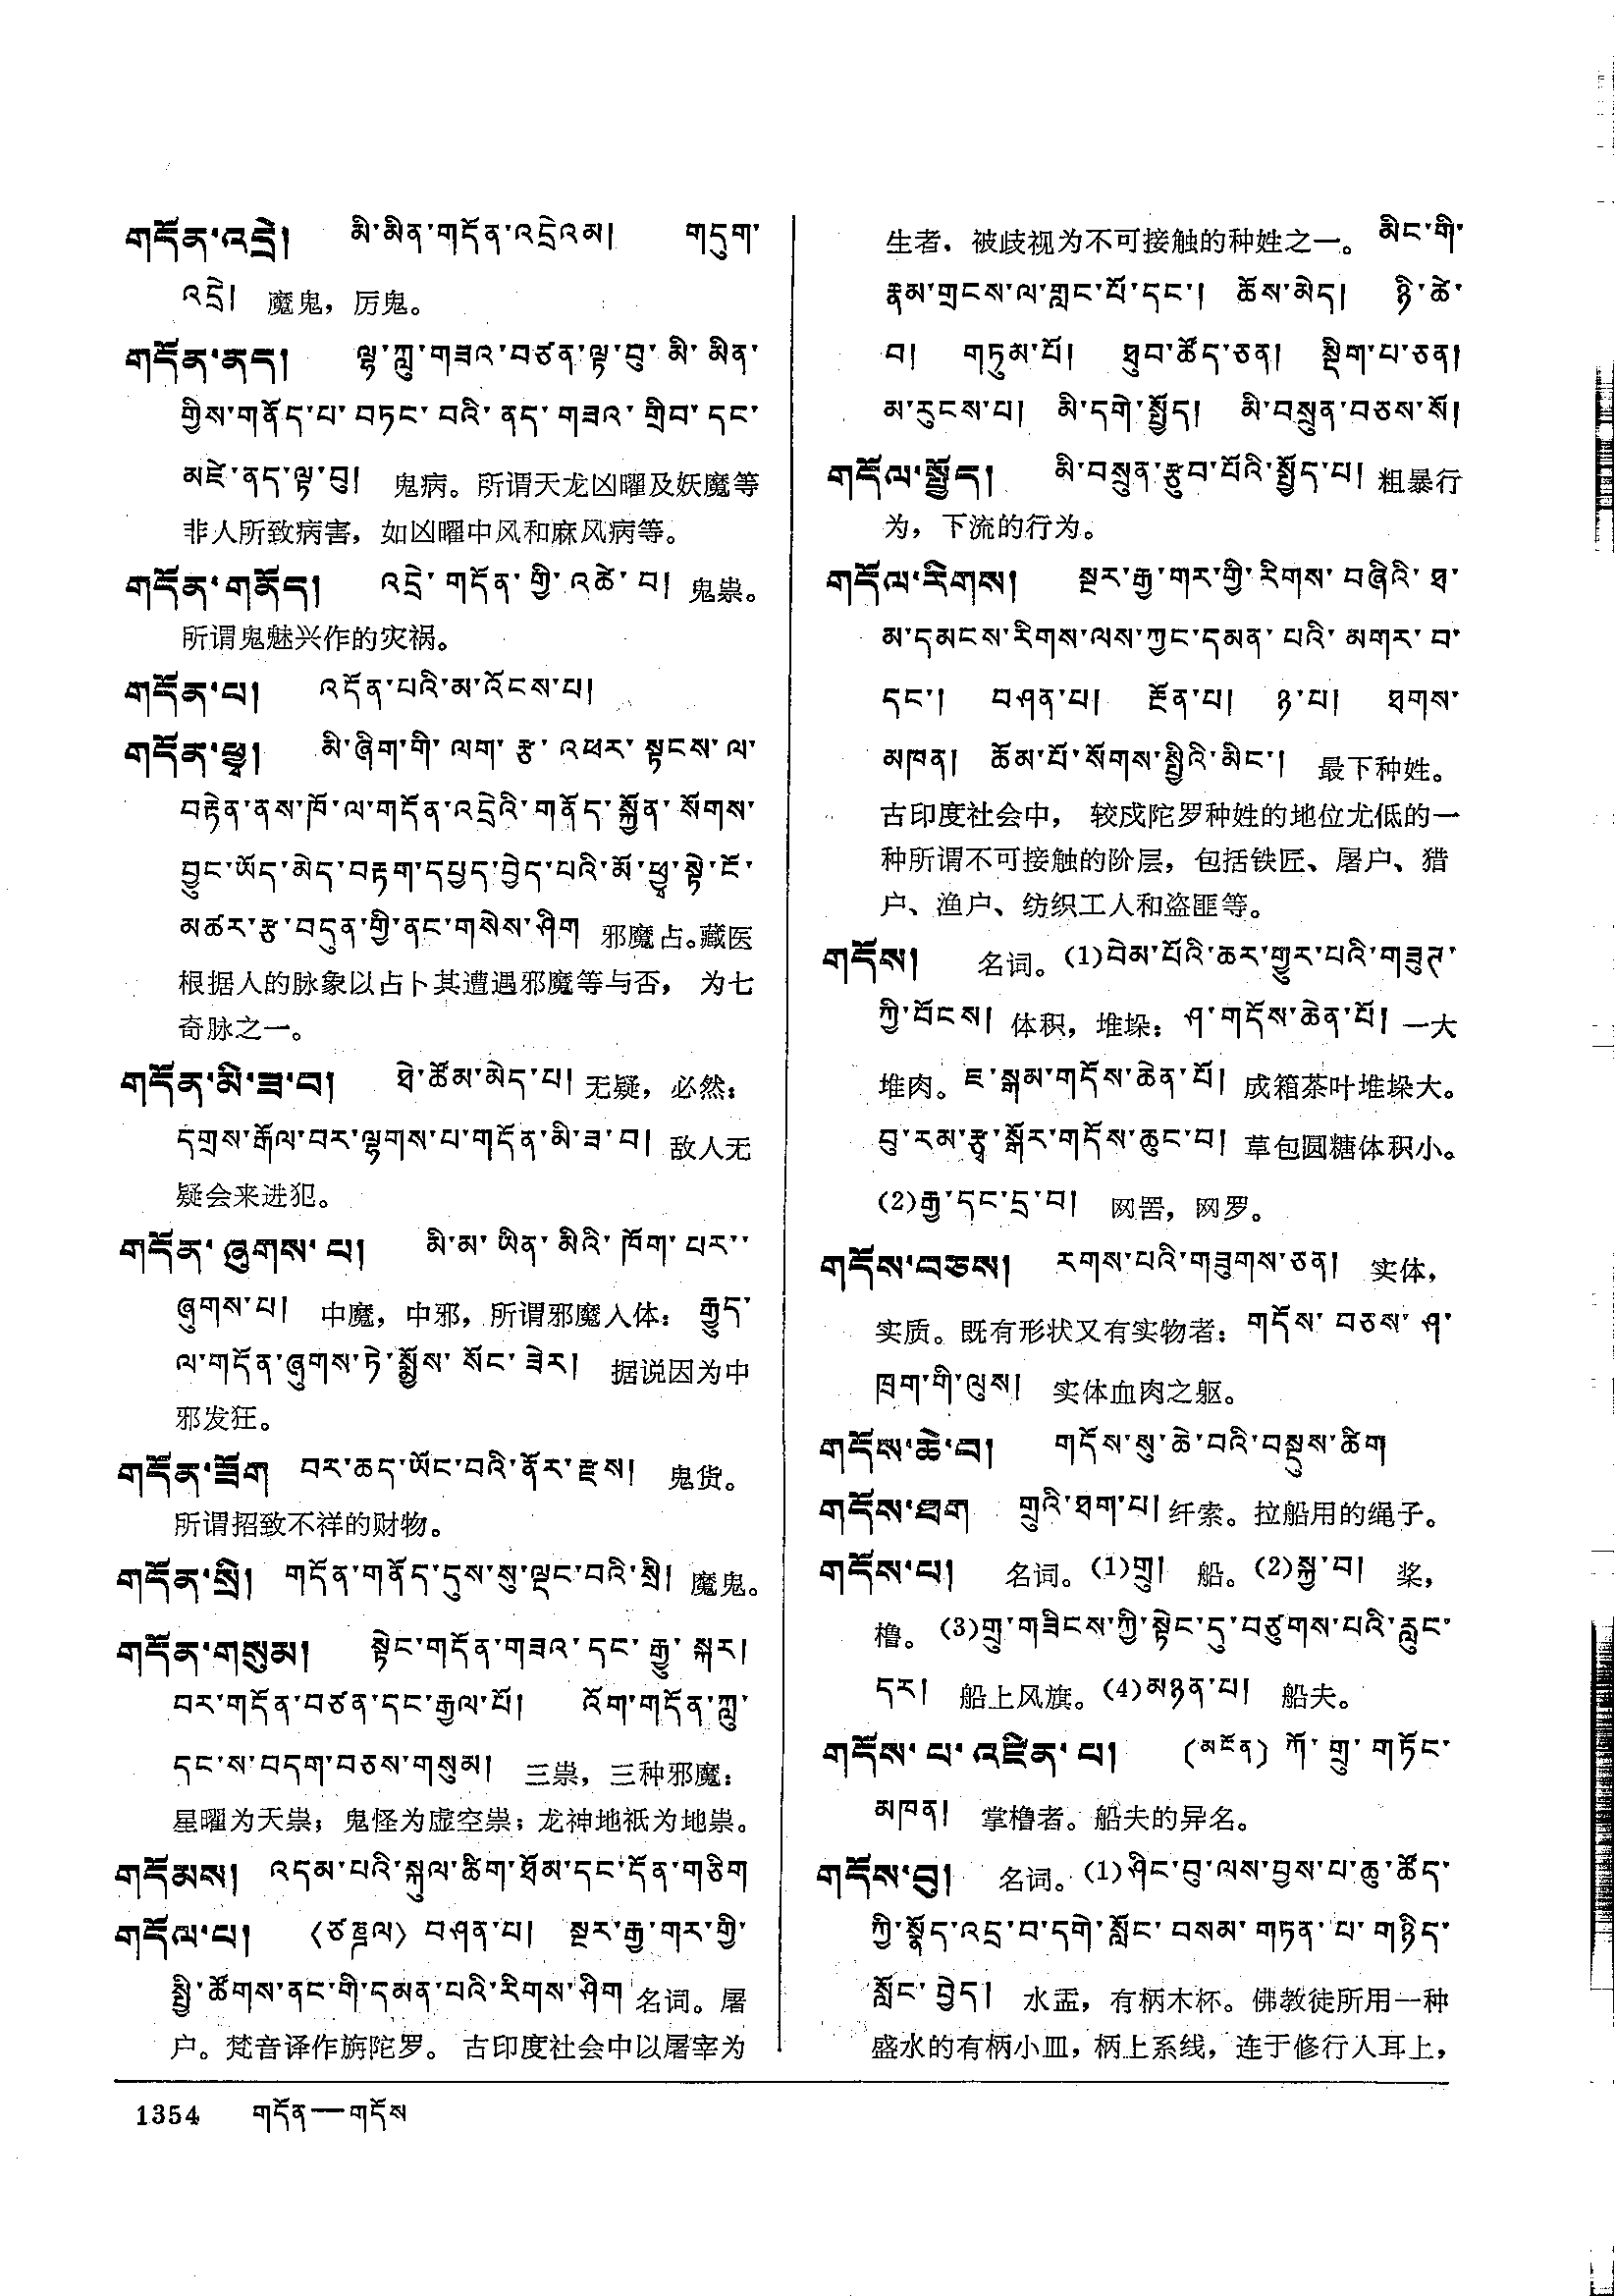 གདོན་འདྲེ། མི་མིན་གདོན་འདྲེའམ། གདུག་
འདྲེ། 魔鬼，厉鬼。
གདོན་ནད། ལྷ་ཀླུ་གཟའ་བཙན་ལྟ་བུ་མི་མིན་
གྱིས་གནོད་པ་བཏང་བའི་ནད་གཟའ་གྲིབ་དང་
མཛེ་ནད་ལྟ་བུ། 鬼病。所谓天龙凶曜及妖魔等
非人所致病害，如凶曜中风和麻风病等。
གདོན་གནོད། འདྲེ་གདོན་གྱི་འཚེ་བ། 鬼祟。
所谓鬼魅兴作的灾祸。
གདོན་པ། འདོན་པའི་མ་འོངས་པ།
གདོན་ཕྱྭ། མི་ཞིག་གི་ལག་རྩ་འཕར་སྟངས་ལ་
བརྟེན་ནས་ཁོ་ལ་གདོན་འདྲེའི་གནོད་སྐྱོན་སོགས་
བྱུང་ཡོད་མེད་བརྟག་དཔྱད་བྱེད་པའི་མོ་ཕྱྭ་སྟེ་ངོ་
མཚར་རྩ་བདུན་གྱི་ནང་གསེས་ཤིག 邪魔占。藏医
根据人的脉象以占卜其遭遇邪魔等与否，为七
奇脉之一。
གདོན་མི་ཟ་བ། ཐེ་ཚོམ་མེད་པ། 无疑，必然：
དགྲས་རྒོལ་བར་ལྷགས་པ་གདོན་མི་ཟ་བ། 敌人无
疑会来进犯。
གདོན་ཞུགས་པ། མི་མ་ཡིན་མིའི་ཁོག་པར་
ཞུགས་པ། 中魔，中邪，所谓邪魔入体：རྒྱུད་
ལ་གདོན་ཞུགས་ཏེ་སྨྱོས་སོང་ཟེར། 据说因为中
邪发狂。
གདོན་ཟོག བར་ཆད་ཡོང་བའི་ནོར་རྫས། 鬼货。
所谓招致不祥的财物。
གདོན་སྲི། གདོན་གནོད་དུས་སུ་ལྡང་བའི་སྲི། 魔鬼。
གདོན་གསུམ། སྟེང་གདོན་གཟའ་དང་རྒྱུ་སྐར།
བར་གདོན་བཙན་དང་རྒྱལ་པོ། འོག་གདོན་ཀླུ་
དང་ས་བདག་བཅས་གསུམ། 三祟，三种邪魔：
星曜为天祟；鬼怪为虚空祟；龙神地祇为地祟。
གདོམས། འདམ་པའི་སྐུལ་ཚིག་ཐོམ་དང་དོན་གཅིག
གདོལ་པ། 〈ཙཎྜལ〉 བཤན་པ། སྔར་རྒྱ་གར་གྱི་
སྤྱི་ཚོགས་ནང་གི་དམན་པའི་རིགས་ཤིག 名词。屠
户。梵音译作旃陀罗。古印度社会中以屠宰为
生者，被歧视为不可接触的种姓之一。མིང་གི་
རྣམ་གྲངས་ལ་གླང་པོ་དང་། ཆོས་མེད། ཉི་ཚེ་
བ། གཏུམ་པོ། ཐུབ་ཚོད་ཅན། སྡིག་པ་ཅན།
མ་རུངས་པ། མི་དགེ་སྤྱོད། མི་བསྲུན་བཅས་སོ།
གདོལ་སྤྱོད། མི་བསྲུན་རྩུབ་པོའི་སྤྱོད་པ། 粗暴行
为，下流的行为。
གདོལ་རིགས། སྔར་རྒྱ་གར་གྱི་རིགས་བཞིའི་ཐ་
མ་དམངས་རིགས་ལས་ཀྱང་དམན་པའི་མགར་བ་
དང་། བཤན་པ། རྔོན་པ། ཉ་པ། ཐགས་
མཁན། ཆོམ་པོ་སོགས་སྤྱིའི་མིང་། 最下种姓。
古印度社会中，较戍陀罗种姓的地位尤低的一
种所谓不可接触的阶层，包括铁匠、屠户、猎
户、渔户、纺织工人和盗匪等。
གདོས། 名词。(1)བེམ་པོའི་ཆར་གྱུར་པའི་གཟུཊ་
ཀྱི་བོངས། 体积，堆垛：ཤ་གདོས་ཆེན་པོ། 一大
堆肉。ཇ་སྒམ་གདོས་ཆེན་པོ། 成箱茶叶堆垛大。
བུ་རམ་རྩྭ་སྒོར་གདོས་ཆུང་བ། 草包圆糖体积小。
(2)རྒྱ་དང་དྲ་བ། 网罟，网罗。
གདོས་བཅས། རགས་པའི་གཟུགས་ཅན། 实体，
实质。既有形状又有实物者：གདོས་བཅས་ཤ་
ཁྲག་གི་ལུས། 实体血肉之躯。
གདོས་ཆེ་བ། གདོས་སུ་ཆེ་བའི་བསྡུས་ཚིག
གདོས་ཐག གྲུའི་ཐག་པ། 纤索。拉船用的绳子。
གདོས་པ། 名词。(1)གྲུ། 船。(2)སྐྱ་བ། 桨，
橹。(3)གྲུ་གཟིངས་ཀྱི་སྟེང་དུ་བཙུགས་པའི་རླུང་
དར། 船上风旗。(4)མཉན་པ། 船夫。
གདོས་པ་འཛིན་པ། (མངོན) ཀོ་གྲུ་གཏོང་
མཁན། 掌橹者。船夫的异名。
གདོས་བུ། 名词。(1)ཤིང་བུ་ལས་བྱས་པ་ཆུ་ཚོད་
ཀྱི་སྣོད་འདྲ་བ་དགེ་སློང་བསམ་གཏན་པ་གཉིད་
སློང་བྱེད། 水盂，有柄木杯。佛教徒所用一种
盛水的有柄小皿，柄上系线，连于修行人耳上，
1354 གདོན—གདོས